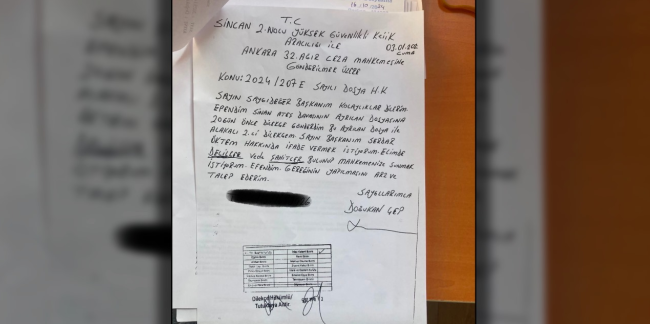 16.10.2024
T.C
SİNCAN 2. NOLU YÜKSEK GÜVENLİKLİ KCİK
ARACILIĞI İLE
03.01.202
CUMA
ANKARA 32. AĞIR CEZA MAHKEMESİNE
GÖNDERİLMEK ÜZERE
KONU: 2024/207 E SAYILI DOSYA H.K
SAYIN SAYGIDEĞER BAŞKANIM KOLAYLIKLAR DİLERİM.
EFENDİM SİNAN ATEŞ DAVASININ AYRILAN DOSYASINA
20 GÜN ÖNCE DİLEKÇE GÖNDERDİM BU AYRILAN DOSYA İLE
ALAKALI 2.Cİ DİLEKÇEM. SAYIN BAŞKANIM SERDAR
ÖKTEM HAKKINDA İFADE VERMEK İSTİYORUM. ELİMDE
DELİLLER VE DE ŞAHİTLER BULUNUP MAHKEMENİZE SUNMAK
İSTİYORUM. EFENDİM. GEREĞİNİN YAPILMASINI ARZ VE
TALEP EDERİM.
SAYGILARIMLA
DOĞUKAN ÇEP
Dilekçe Hükümlü/
Tutukluya Aittir.